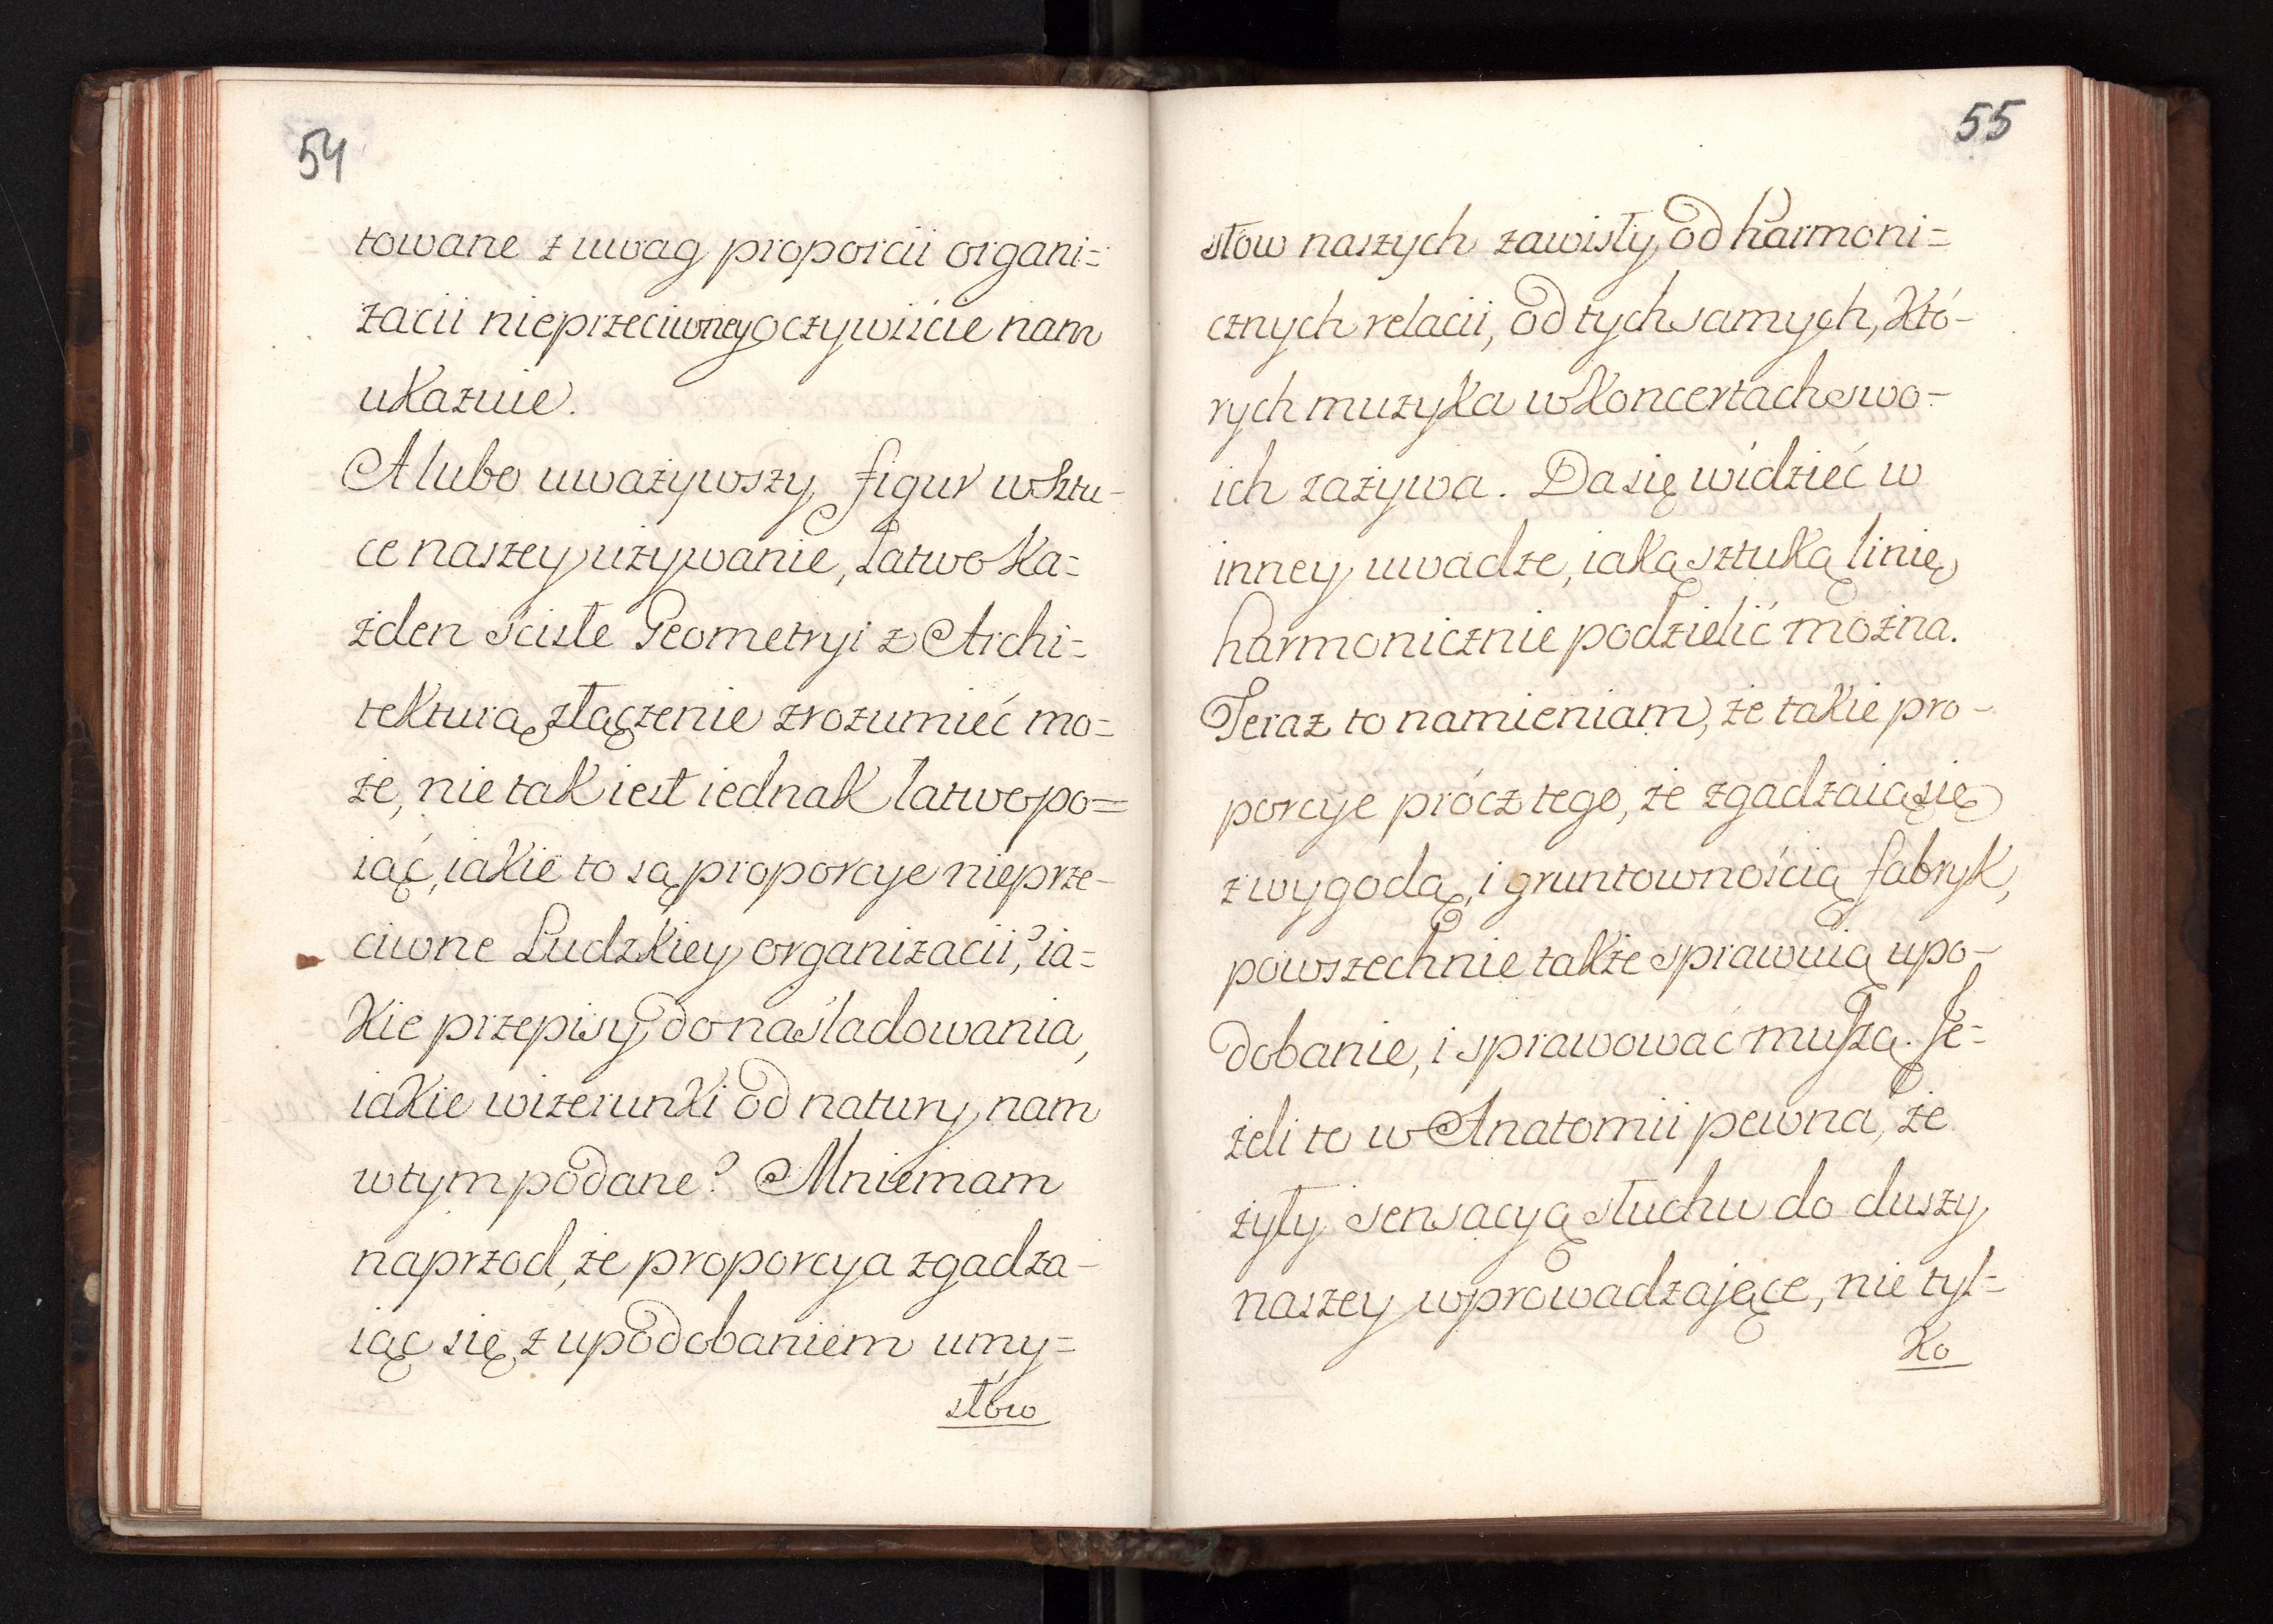 54
towane z uwag proporcii organi=
zacii nieprzeciwney oczywiście nam
ukazuie.
A lubo uważywszy figur w sztu-
ce naszey używanie, Łatwo Ka=
żden ściśle Geometryi z Archi=
tekturą złączenie zrozumieć mo=
że, nie tak iest iednak latwo po=
iąć, iakie to są proporcye nieprze-
ciwne Ludzkiey organizacii, ia=
kie przepisy do naśladowania,
iakie wizerunki od natury nam
w tym podane? Mniemam
naprzod, że proporcya zgadza-
iąc się z upodobaniem umy=
słow
55
słow naszych zawisły od harmoni=
cznych relacii, od tych samych, Któ-
rych muzyka w koncertach swo-
ich zażywa. Da się widzieć w
inney uwadze, iaką sztuką linię
harmonicznie podzielić można.
Teraz to namieniam, że takie pro-
porcye prócz tego, że zgadzaią się
z wygodą, i gruntownością fabryk,
powszechnie także sprawuią upo-
dobanie, i sprawować muszą. Je=
żeli to w Anatomii pewna, że
żyły sensacyą słuchu do duszy
naszey wprowadzające, nie tyl=
ko